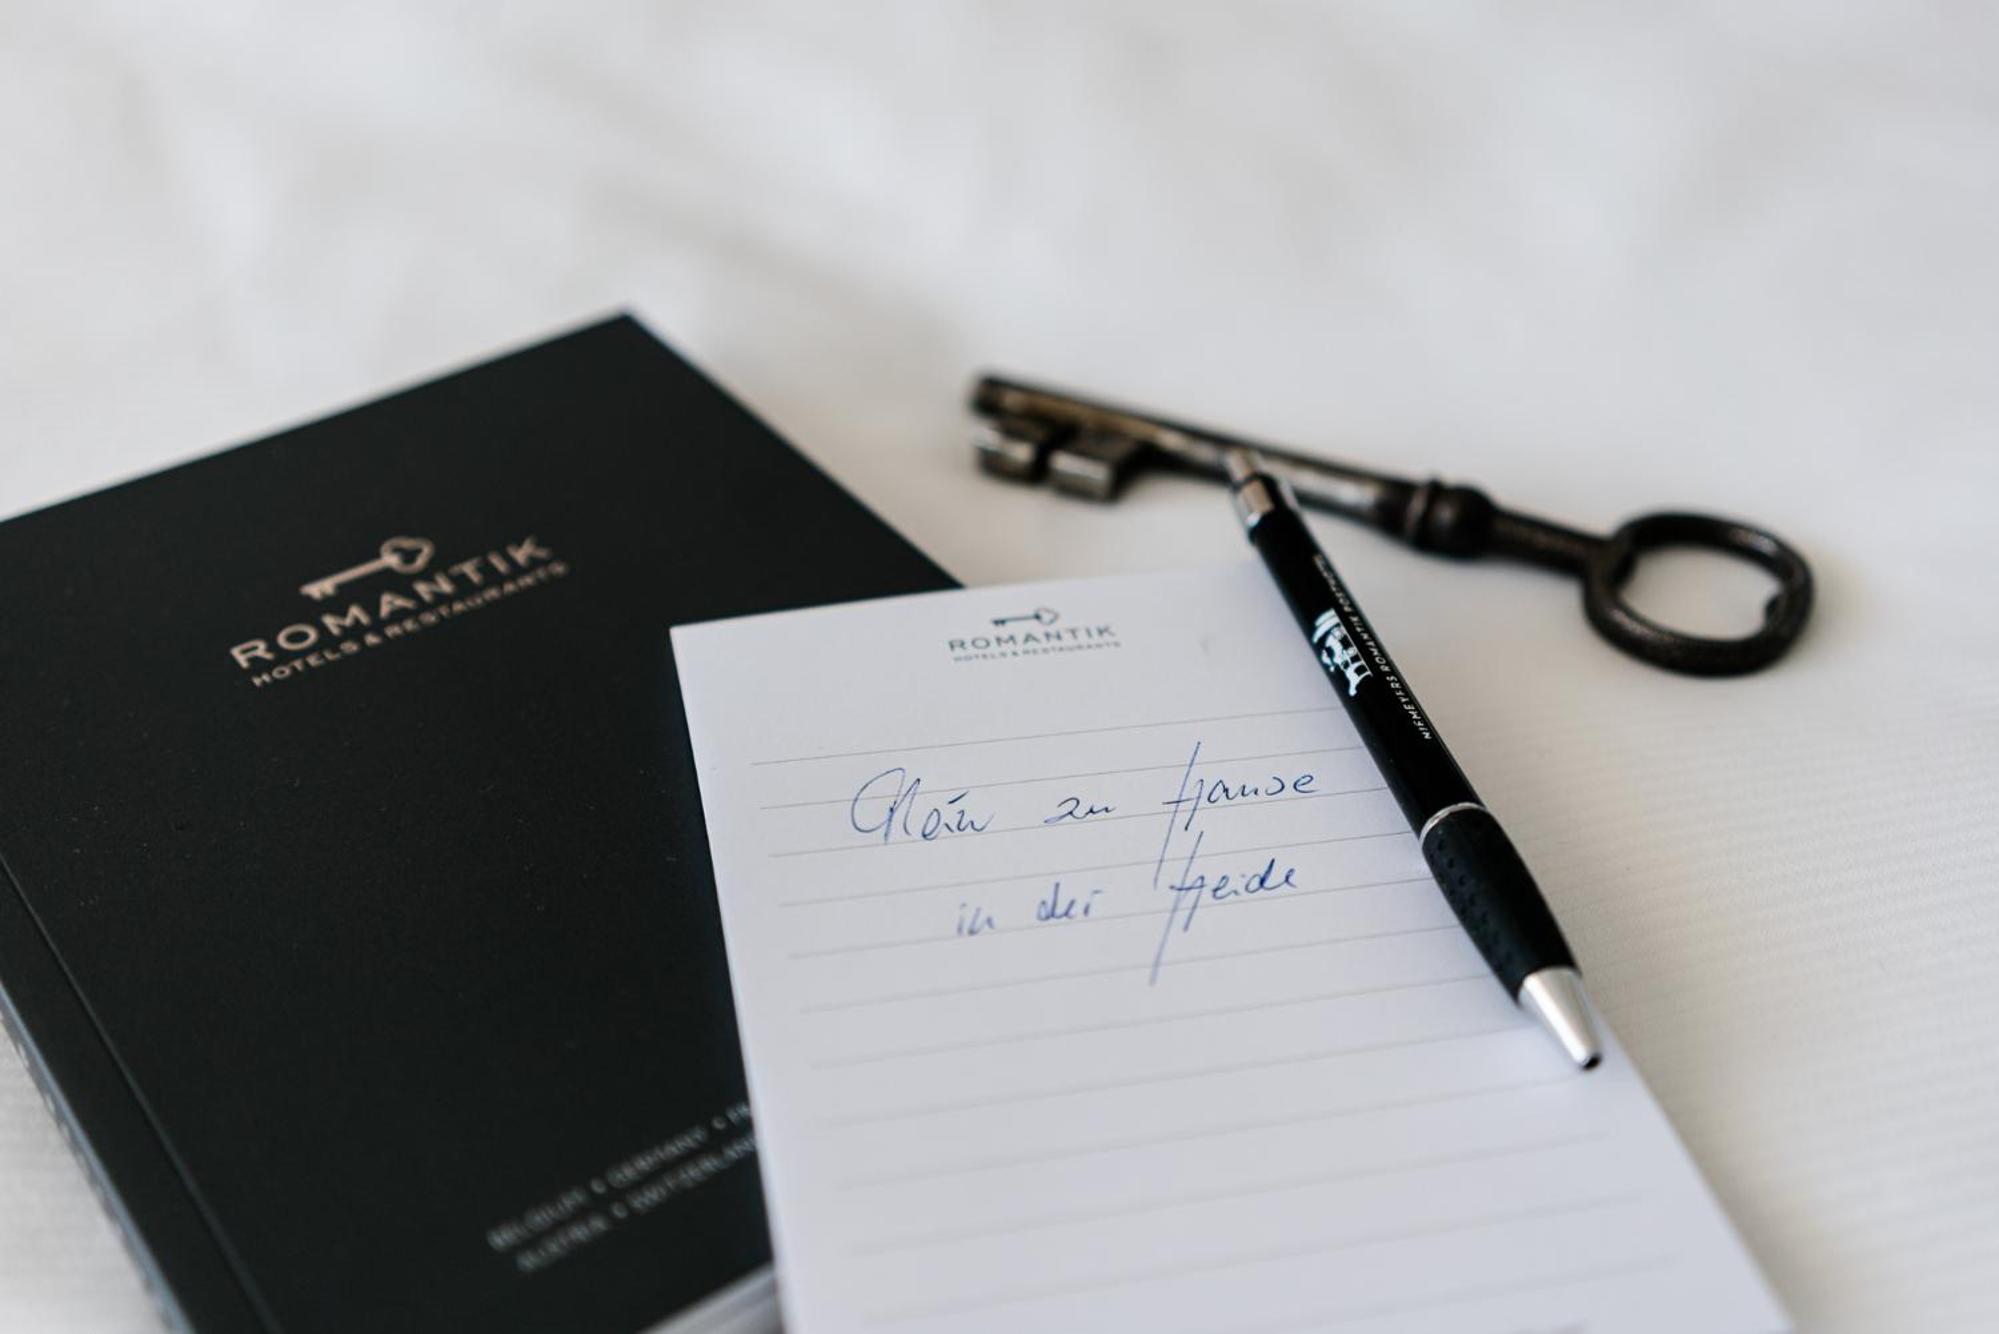 ROMANTIK
HOTELS & RESTAURANTS
BELGIUM • GERMANY •
AUSTRIA • SWITZERLAND
ROMANTIK
HOTELS & RESTAURANTS
Mein zu Hause
in der Heide
NIEMEYERS ROMANTIK POSTHOTEL